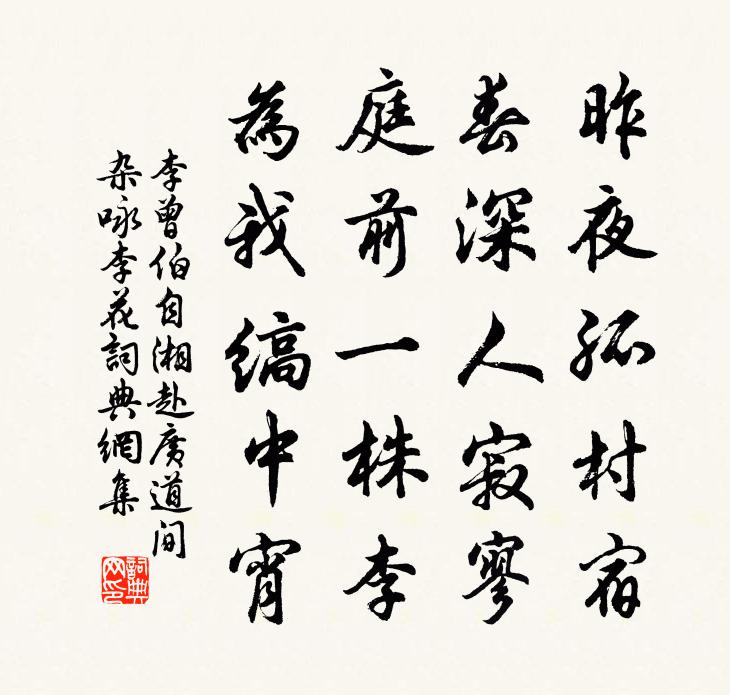 昨夜孤村宿
春深人寂寥
庭前一株李
為我縞中宵
李曾伯自湘赴廣道间
杂咏李花詞典網集
詞典
网印